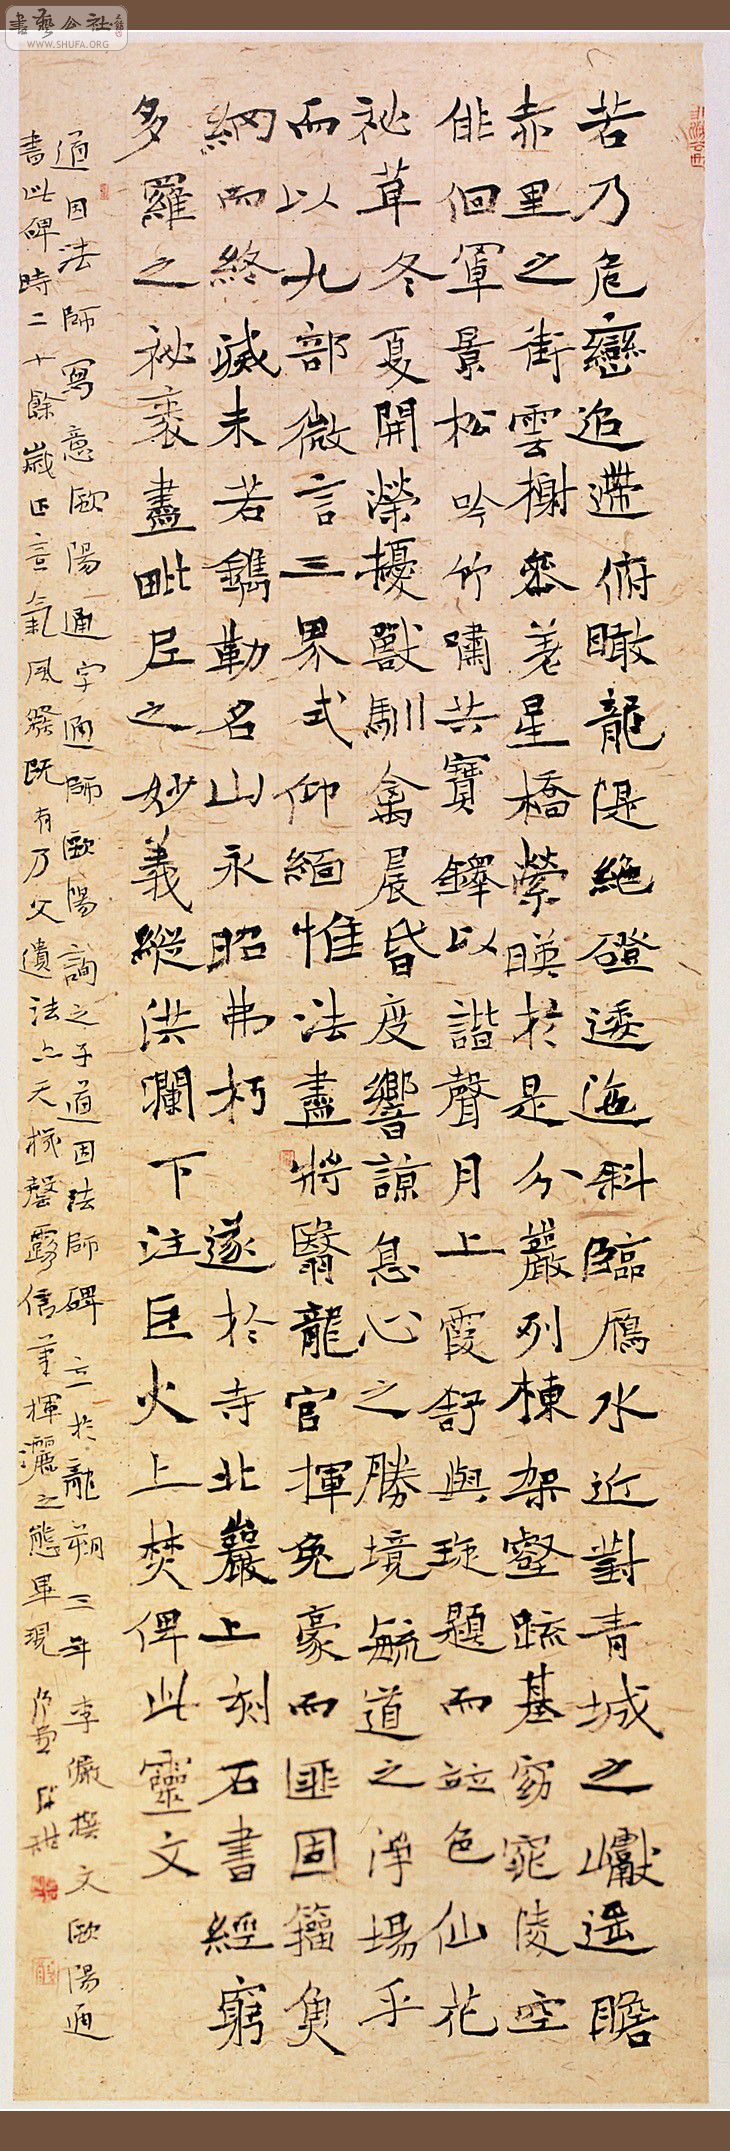 書藝公社
WWW.SHUFA.ORG
若乃危巒迢遰俯瞰龍堤絶磴逶迤斜臨鴈水近對青城之巘遥瞻
赤里之街雲榭參差星橋縈暎於是分巖列棟架壑疏基窈窕陵空
俳佪罩景松吟竹嘯共寶鐸以諧聲月上霞舒與琁題而並色仙花
祕草冬夏開榮擾獸馴禽晨昏度響諒息心之勝境毓道之淨場乎
而以九部微言三界式仰緬惟法盡將翳龍宫揮兔豪而匪固籀魚
網而終滅未若鐫勒名山永昭弗朽遂於寺北巖上刻石書經窮
多羅之祕袠盡毗尼之妙義縱洪瀾下注巨火上焚俾此靈文
道因法師寫意歐陽通字通師歐陽詢之子道因法師碑立於龍朔三年李儼撰文歐陽通
書此碑時二十餘歲正意氣風發既有乃父遺法亦天機罄露信筆揮灑之態畢現